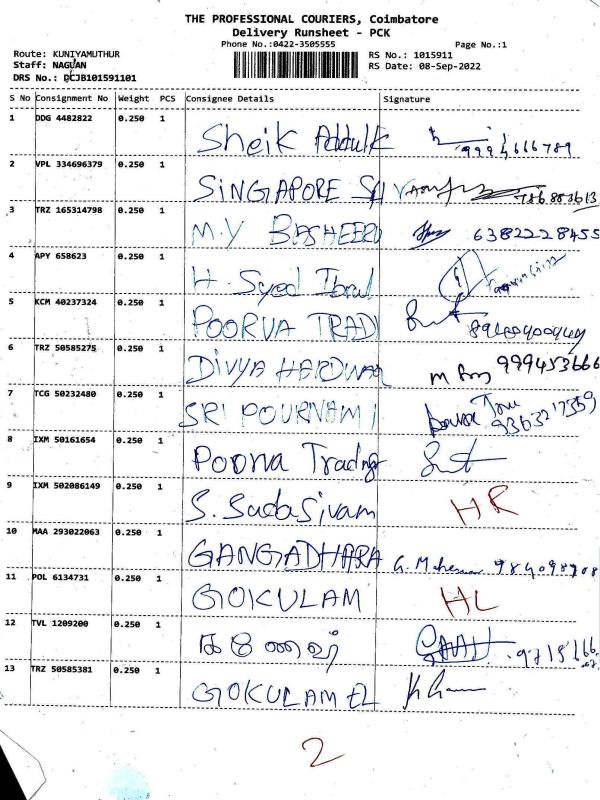 THE PROFESSIONAL COURIERS, Coimbatore
Delivery Runsheet - PCK
Phone No.:0422-3505555 Page No.:1
Route: KUNIYAMUTHUR RS No.: 1015911
Staff: NAGUAN RS Date: 08-Sep-2022
DRS No.: DCJB101591101
S No Consignment No Weight PCS Consignee Details Signature
1 DDG 4482822 0.250 1 Sheik Abdulk
2 VPL 334696379 0.250 1 SINGAPORE SH
3 TRZ 165314798 0.250 1 M.Y BASHEERU 6382228455
4 APY 658623 0.250 1 H. Syed Ibral
5 KCM 40237324 0.250 1 POORVA TRADI
6 TRZ 50585275 0.250 1 DIVYA HARDWAR 999453666
7 TCG 50232480 0.250 1 SRI POURNAMI 9363217359
8 IXM 50161654 0.250 1 Poorva Trading
9 IXM 502086149 0.250 1 S. Sadasivam HR
10 MAA 293022063 0.250 1 GANGADHARA
11 POL 6134731 0.250 1 GOKULAM HL
12 TVL 1209200 0.250 1
13 TRZ 50585381 0.250 1 GOKULAM EL
2